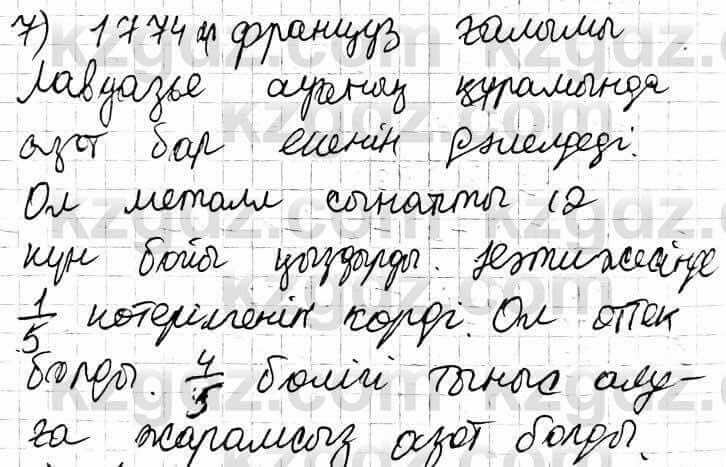 7) 1774 ж француз ғалымы
Лавуазье ауаның құрамында
азот бар екенін дәлелдеді.
Ол металл сынапты 12
күн бойы қыздырды. Нәтижесінде
1/5 көтерілгенін көрді. Ол оттек
болды. 4/5 бөлігі тыныс алу-
ға жарамсыз азот болды.